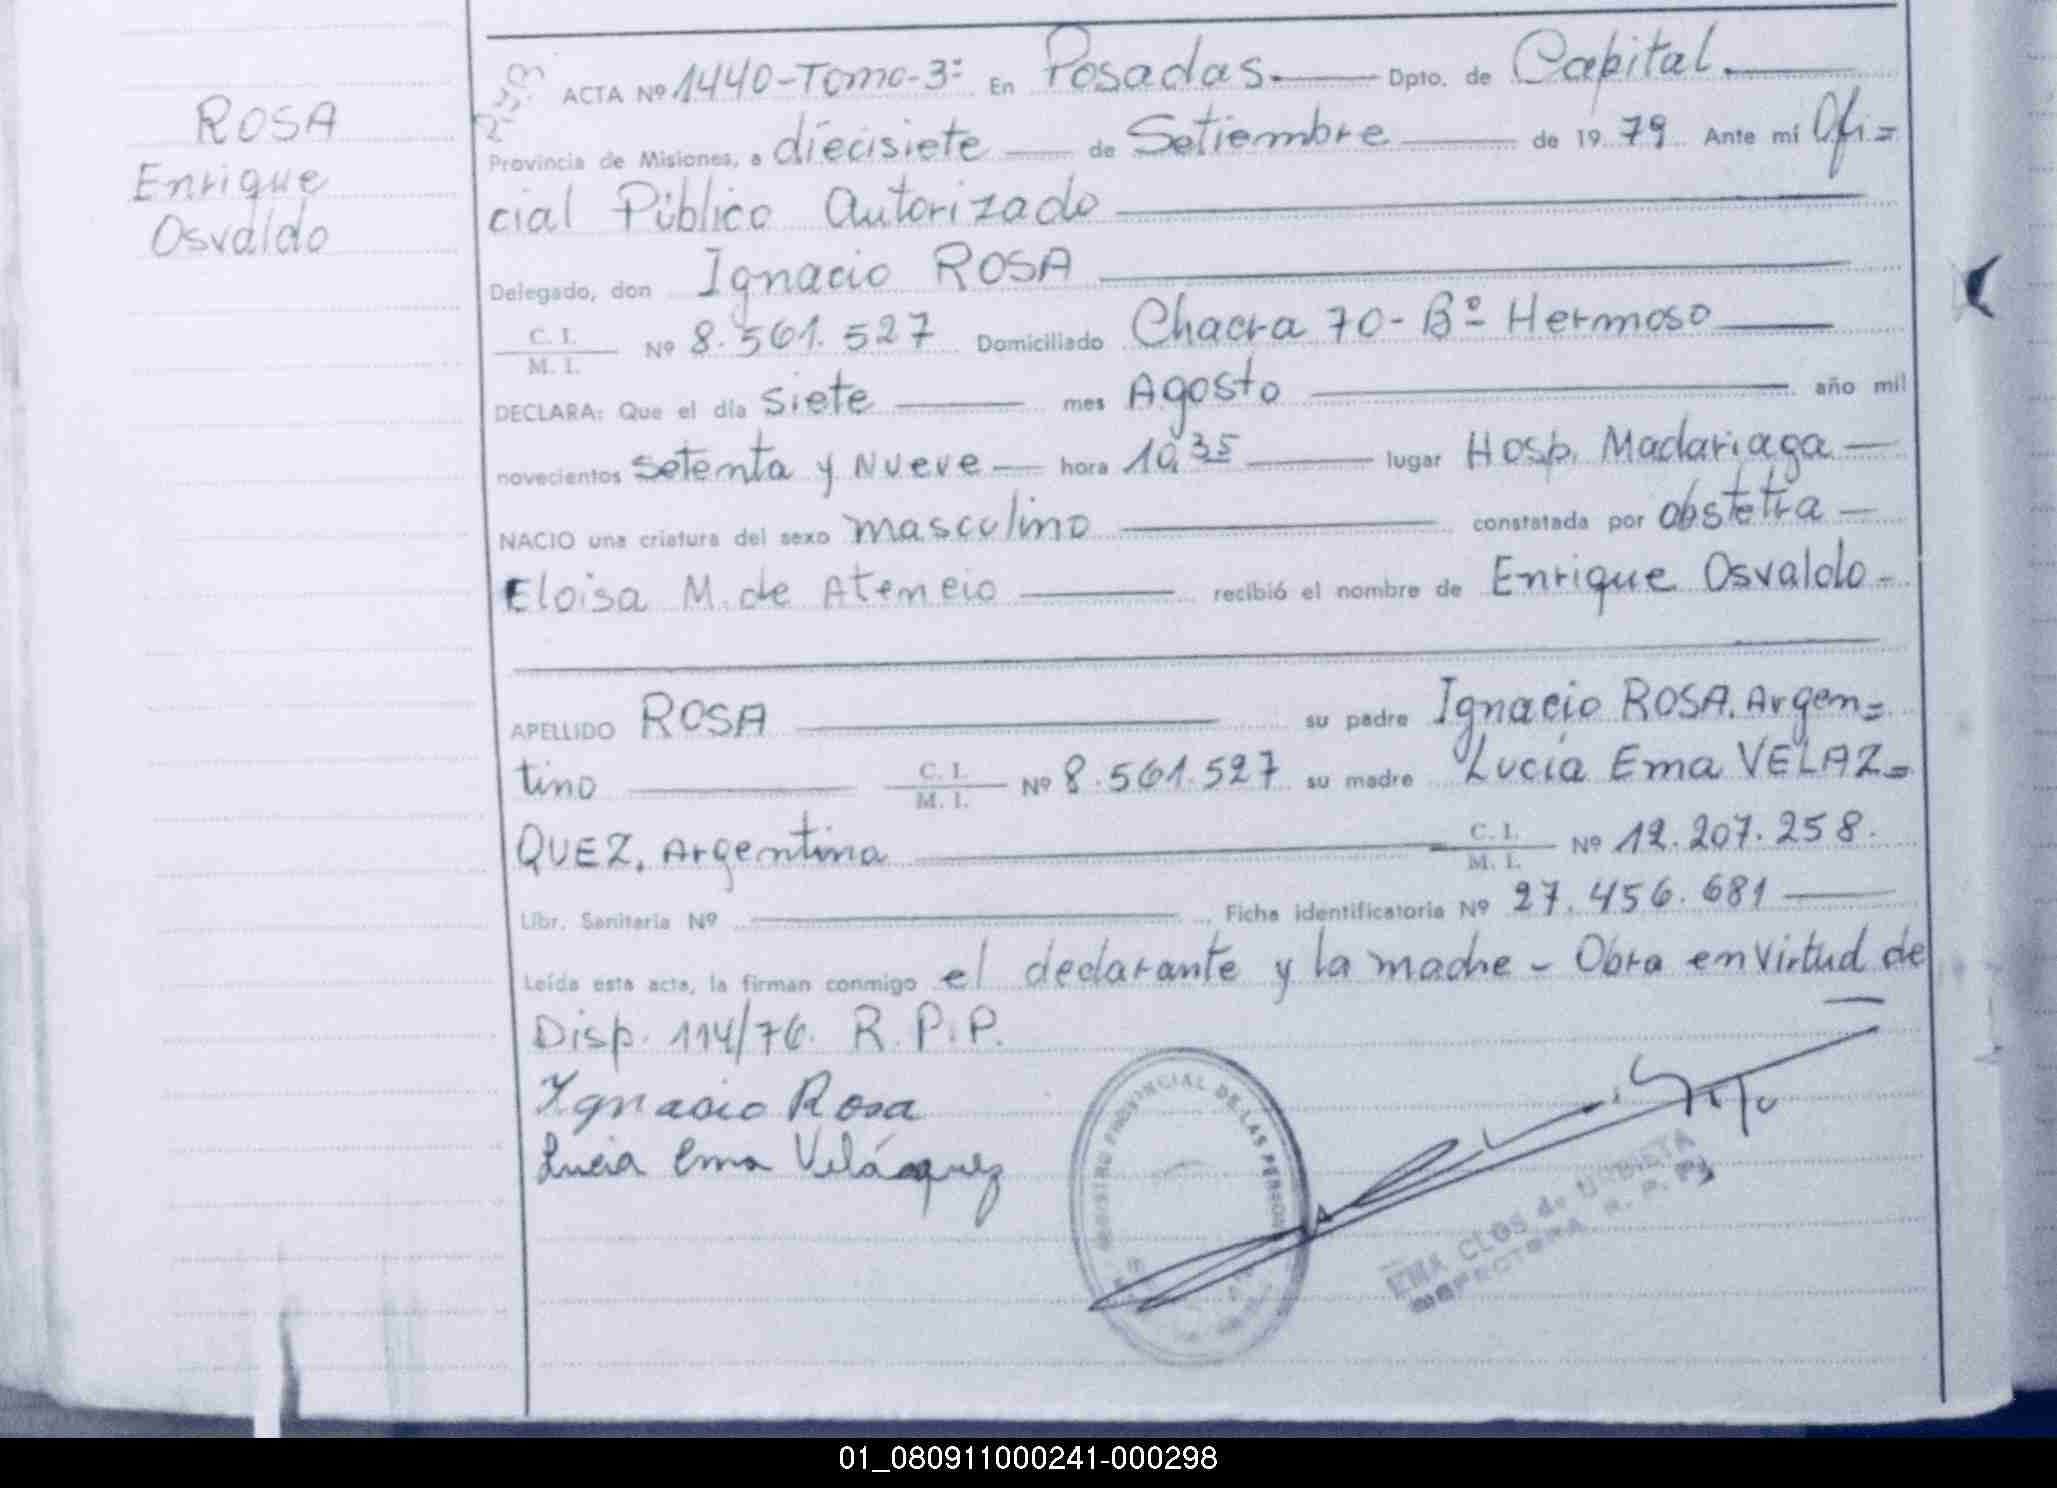 ROSA
Enrique
Osvaldo
ACTA Nº 1440-Tomo-3º En Posadas. Dpto. de Capital.
Provincia de Misiones, a diecisiete de Setiembre de 1979 Ante mí Ofi=
cial Público Autorizado
Delegado, don Ignacio ROSA
C. I.
M. I. Nº 8.561.527 Domiciliado Chacra 70- Bº Hermoso
DECLARA: Que el día siete mes Agosto año mil
novecientos setenta y Nueve hora 10,35 lugar Hosp. Madariaga
NACIO una criatura del sexo masculino constatada por obstetra
Eloisa M. de Atencio recibió el nombre de Enrique Osvaldo
APELLIDO ROSA su padre Ignacio ROSA. Argen=
tino C. I. M. I. Nº 8.561.527 su madre Lucía Ema VELAZ=
QUEZ. Argentina C. I. M. I. Nº 12.207.258.
Libr. Sanitaria Nº Ficha identificatoria Nº 27.456.681
Leída esta acta, la firman conmigo el declarante y la madre - Obra en virtud de
Disp. 114/76. R.P.P.
Ignacio Rosa
Lucia Ema Velázquez
REGISTRO PROVINCIAL DE LAS PERSONAS
CLOS de URBIETA
R. P. P.
01_080911000241-000298